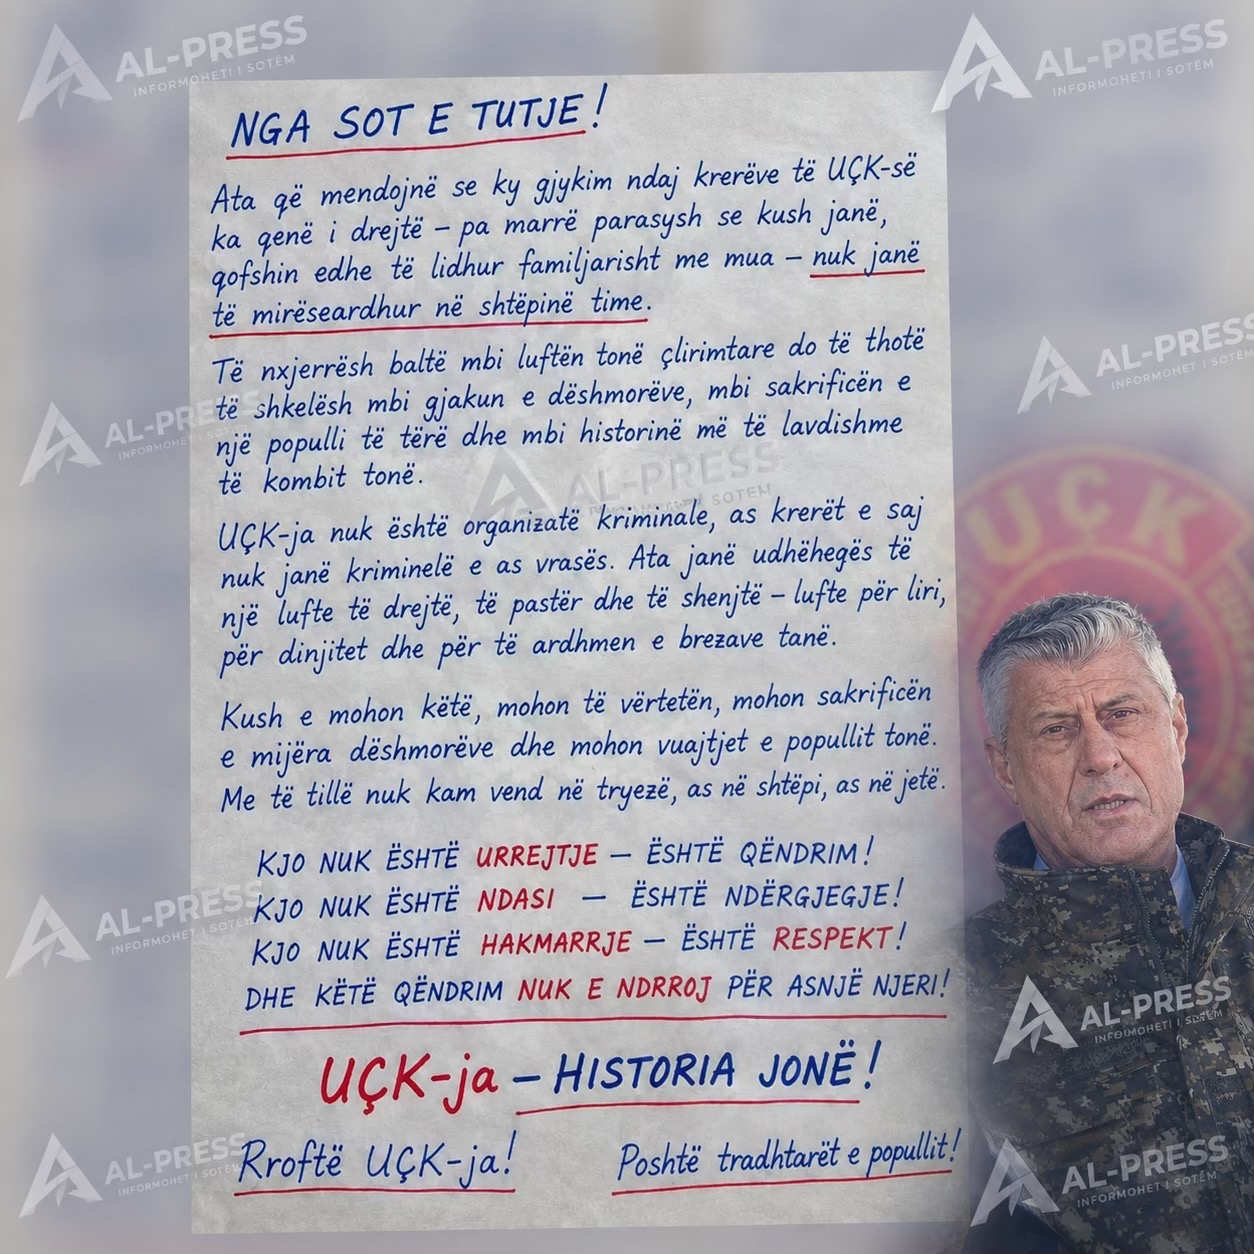 AL-PRESS
INFORMOHETI I SOTËM
AL-PRESS
INFORMOHETI I SOTËM
NGA SOT E TUTJE!
Ata që mendojnë se ky gjykim ndaj krerëve të UÇK-së
ka qenë i drejtë – pa marrë parasysh se kush janë,
qofshin edhe të lidhur familjarisht me mua – nuk janë
të mirëseardhur në shtëpinë time.
AL-PRESS
INFORMOHETI I SOTËM
Të nxjerrësh baltë mbi luftën tonë çlirimtare do të thotë
të shkelësh mbi gjakun e dëshmorëve, mbi sakrificën e
një populli të tërë dhe mbi historinë më të lavdishme
të kombit tonë.
AL-PRESS
INFORMOHETI I SOTËM
AL-PRESS
INFORMOHETI I SOTËM
UÇK
UÇK-ja nuk është organizatë kriminale, as krerët e saj
nuk janë kriminelë e as vrasës. Ata janë udhëhegës të
një lufte të drejtë, të pastër dhe të shenjtë – lufte për liri,
për dinjitet dhe për të ardhmen e brezave tanë.
Kush e mohon këtë, mohon të vërtetën, mohon sakrificën
e mijëra dëshmorëve dhe mohon vuajtjet e popullit tonë.
Me të tillë nuk kam vend në tryezë, as në shtëpi, as në jetë.
KJO NUK ËSHTË URREJTJE – ËSHTË QËNDRIM!
KJO NUK ËSHTË NDASI – ËSHTË NDËRGJEGJE!
KJO NUK ËSHTË HAKMARRJE – ËSHTË RESPEKT!
DHE KËTË QËNDRIM NUK E NDRROJ PËR ASNJË NJERI!
AL-PRESS
INFORMOHETI I SOTËM
AL-PRESS
INFORMOHETI I SOTËM
UÇK-ja – HISTORIA JONË!
Rroftë UÇK-ja! Poshtë tradhtarët e popullit!
AL-PRESS
INFORMOHETI I SOTËM
AL-PRESS
INFORMOHETI I SOTËM